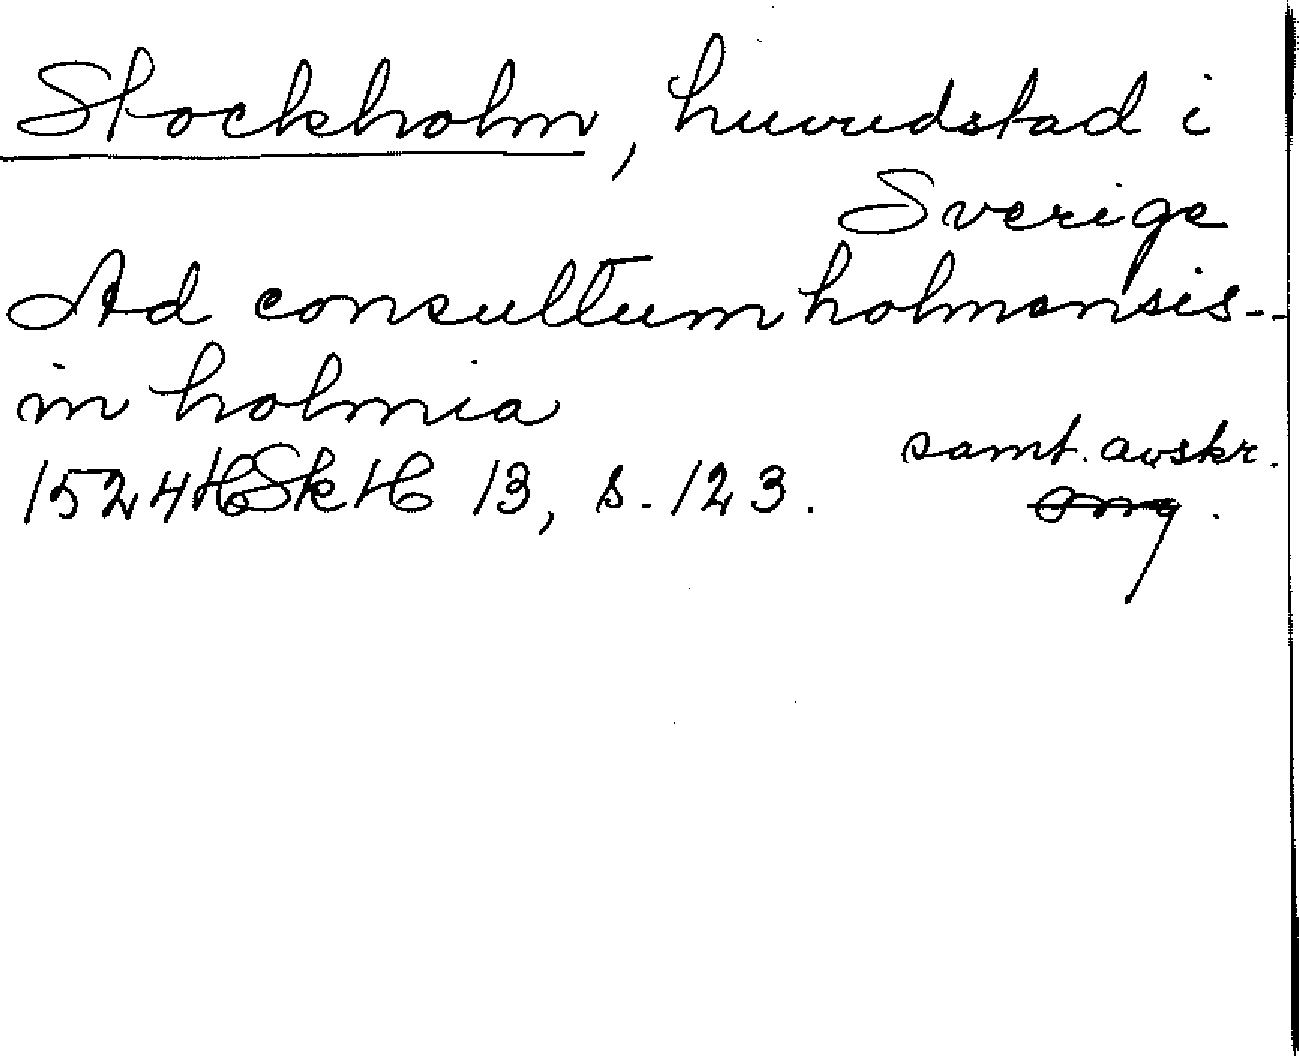 Stockholm, huvudstad i
Sverige
Ad consultum holmensis--
in holmia
samt. avskr.
1524 HSkH 13, s. 123. Orig.